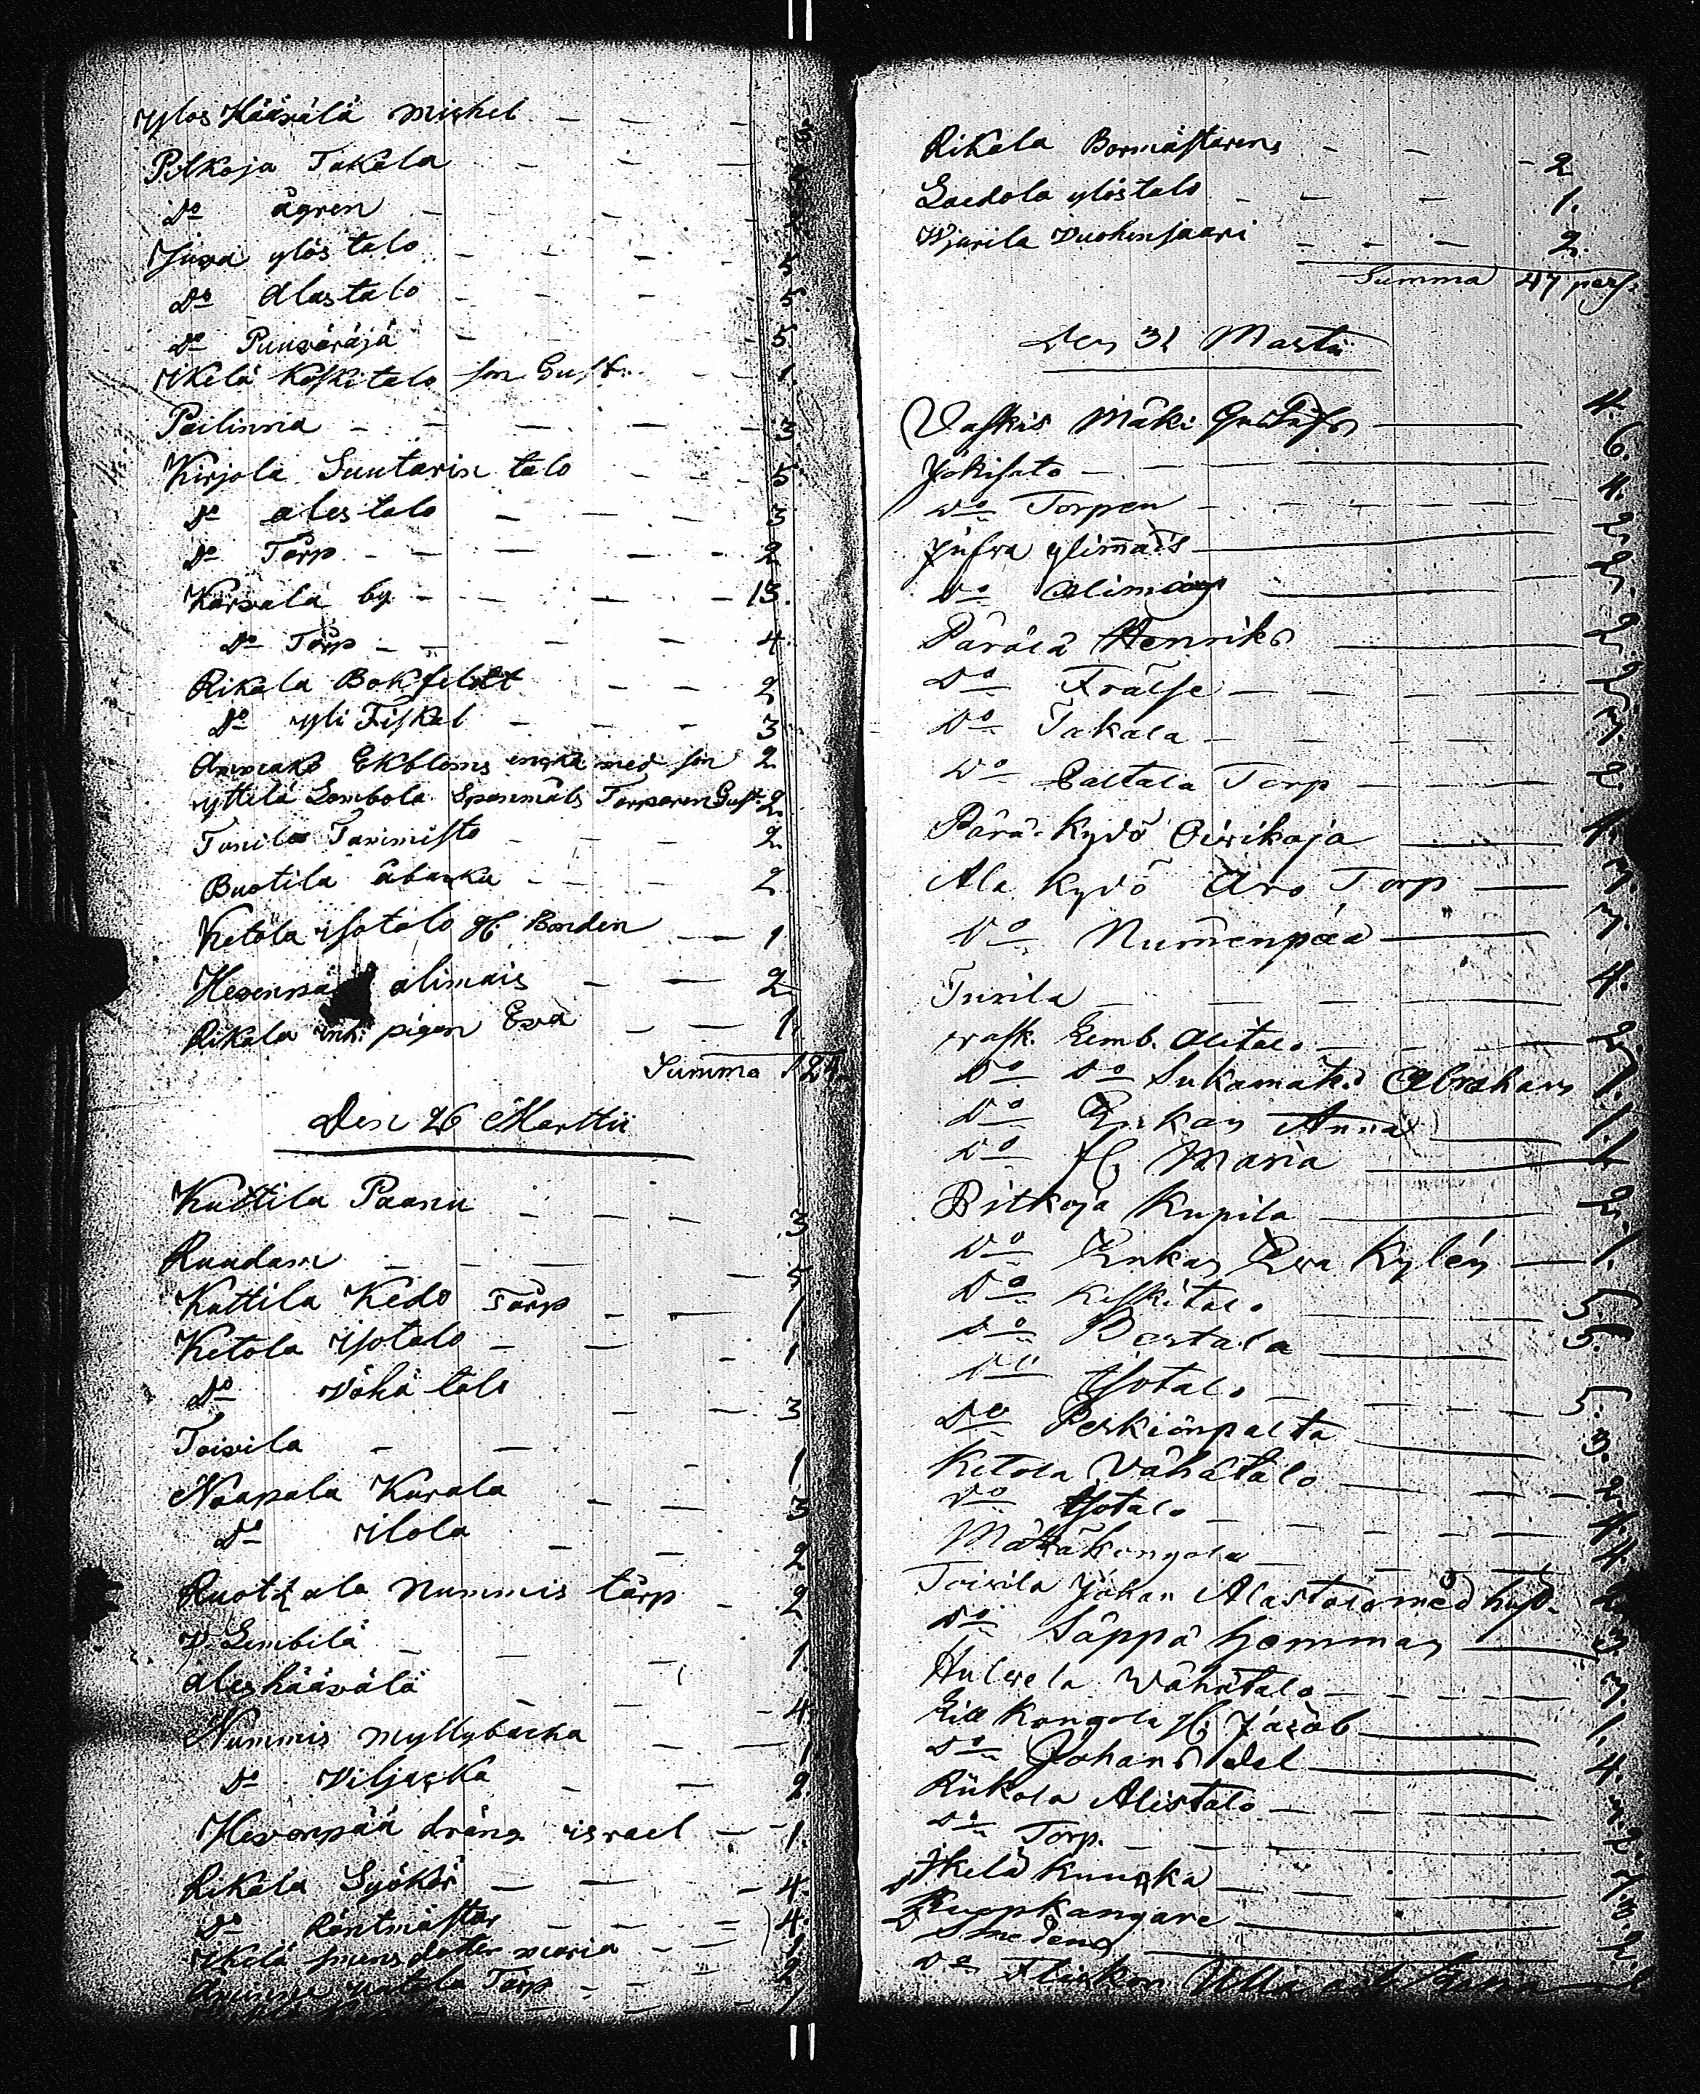 Ylös Häävälä Michel — — — 3
Pitkoja Takala — — —
Do ågren — — —
Jüva ylös talo — — — 5
Do Alastalo — — — 5
Do Punsäräjä — — — 5
Ikelä Keskitalo son Gust. — — 1.
Pailinna — — — 3
Kirjola Suutarin talo — — — 5
Do alestalo — — — 3
Do Tårp — — — 2
Karvala by — — — 13.
Do Tårp — — — 4
Rikala Bokfeldt — — — 2
Do yli Fiskal — — — 3
Ekbloms enka med son 2
yttelä Lembola Torparen Gust. 2
Tunila Tanimisto — — — 2
Buotila åbacka — — — 2
Ketola isotalo gl. Bonden — — 1
alimais — — 2
Rikala inh. pigan Eva — — 1.
Summa 124
Den 26 Marttii
Kuttila Paanu — — — 3
Ruudam — — — 5
Kuttila Kedo Tårp — — 1
Ketola isotalo — — — 1
Do vähä talo — — 3
Toivila — — — 1
Näapala Kurala — — 3
Do ilola — — 2
Ruotzala Nummis tårp — 2
Lembilä — — 1.
ales häävälä — — — 4
Nummis myllybacka — — 1
Do Viljacka — — 2
Hevonpää dräng israel — — 1.
Rikala Syökär — — — 4.
Do Räntmästar — — — 4.
Ikelä smens dotter maria — — 1
uotila Tårp — — — 2
Rikala Bormästarens — — — 2
Laedola ylöstalo — — — 1.
Wjarila Vuohensaari — — — 2.
Summa 47 pers.
Den 31 Martii
Vaskis Mäki Gustafs — 4.
Jokisato — — — 6.
Do Torpen — — — 4.
Jufva ylimäis — 2.
Do alimäis — 2.
Pärälä Henriks — 2
Do Frälse — — — 2
Do Takala — — —
Do Caltala Torp — — — 2.
Pärä-Kydö Oirikoja — 1.
Ala Kydö Aro Torp — 3.
Do Nummenpää — 3.
Turila — — — 4.
vask. Lemb. Alitalo — — — 2
Do Do Sukamak. Abraham 1.
Do Enkan Anna — 1.
Do fl. Maria — 1
Pitkoja Kupila — 2.
Do Enkan Eva Kylén — 1.
Do Keskitalo — 5.
Do Pertala — 5.
Do Isotalo — — — 5.
Do Perkiönpalta — 3.
Ketola Vähätalo — — — 2
Do Isotalo — — — 4.
Mättäkongola — — — 4
Toivila Johan Alastalo med hust.
Do Säppä hemman — 3.
Hulvela Wähätalo — — — 3.
Lill Kongola gl. Jacob — 1.
Do Johan Adel — 4.
Riikola Alistalo — — —
Do Torp. — — — 2.
Ikelä Kuucka — — — 1.
Ruopkangare — 3.
Smedens — 2.
Do Flickan Ulla och